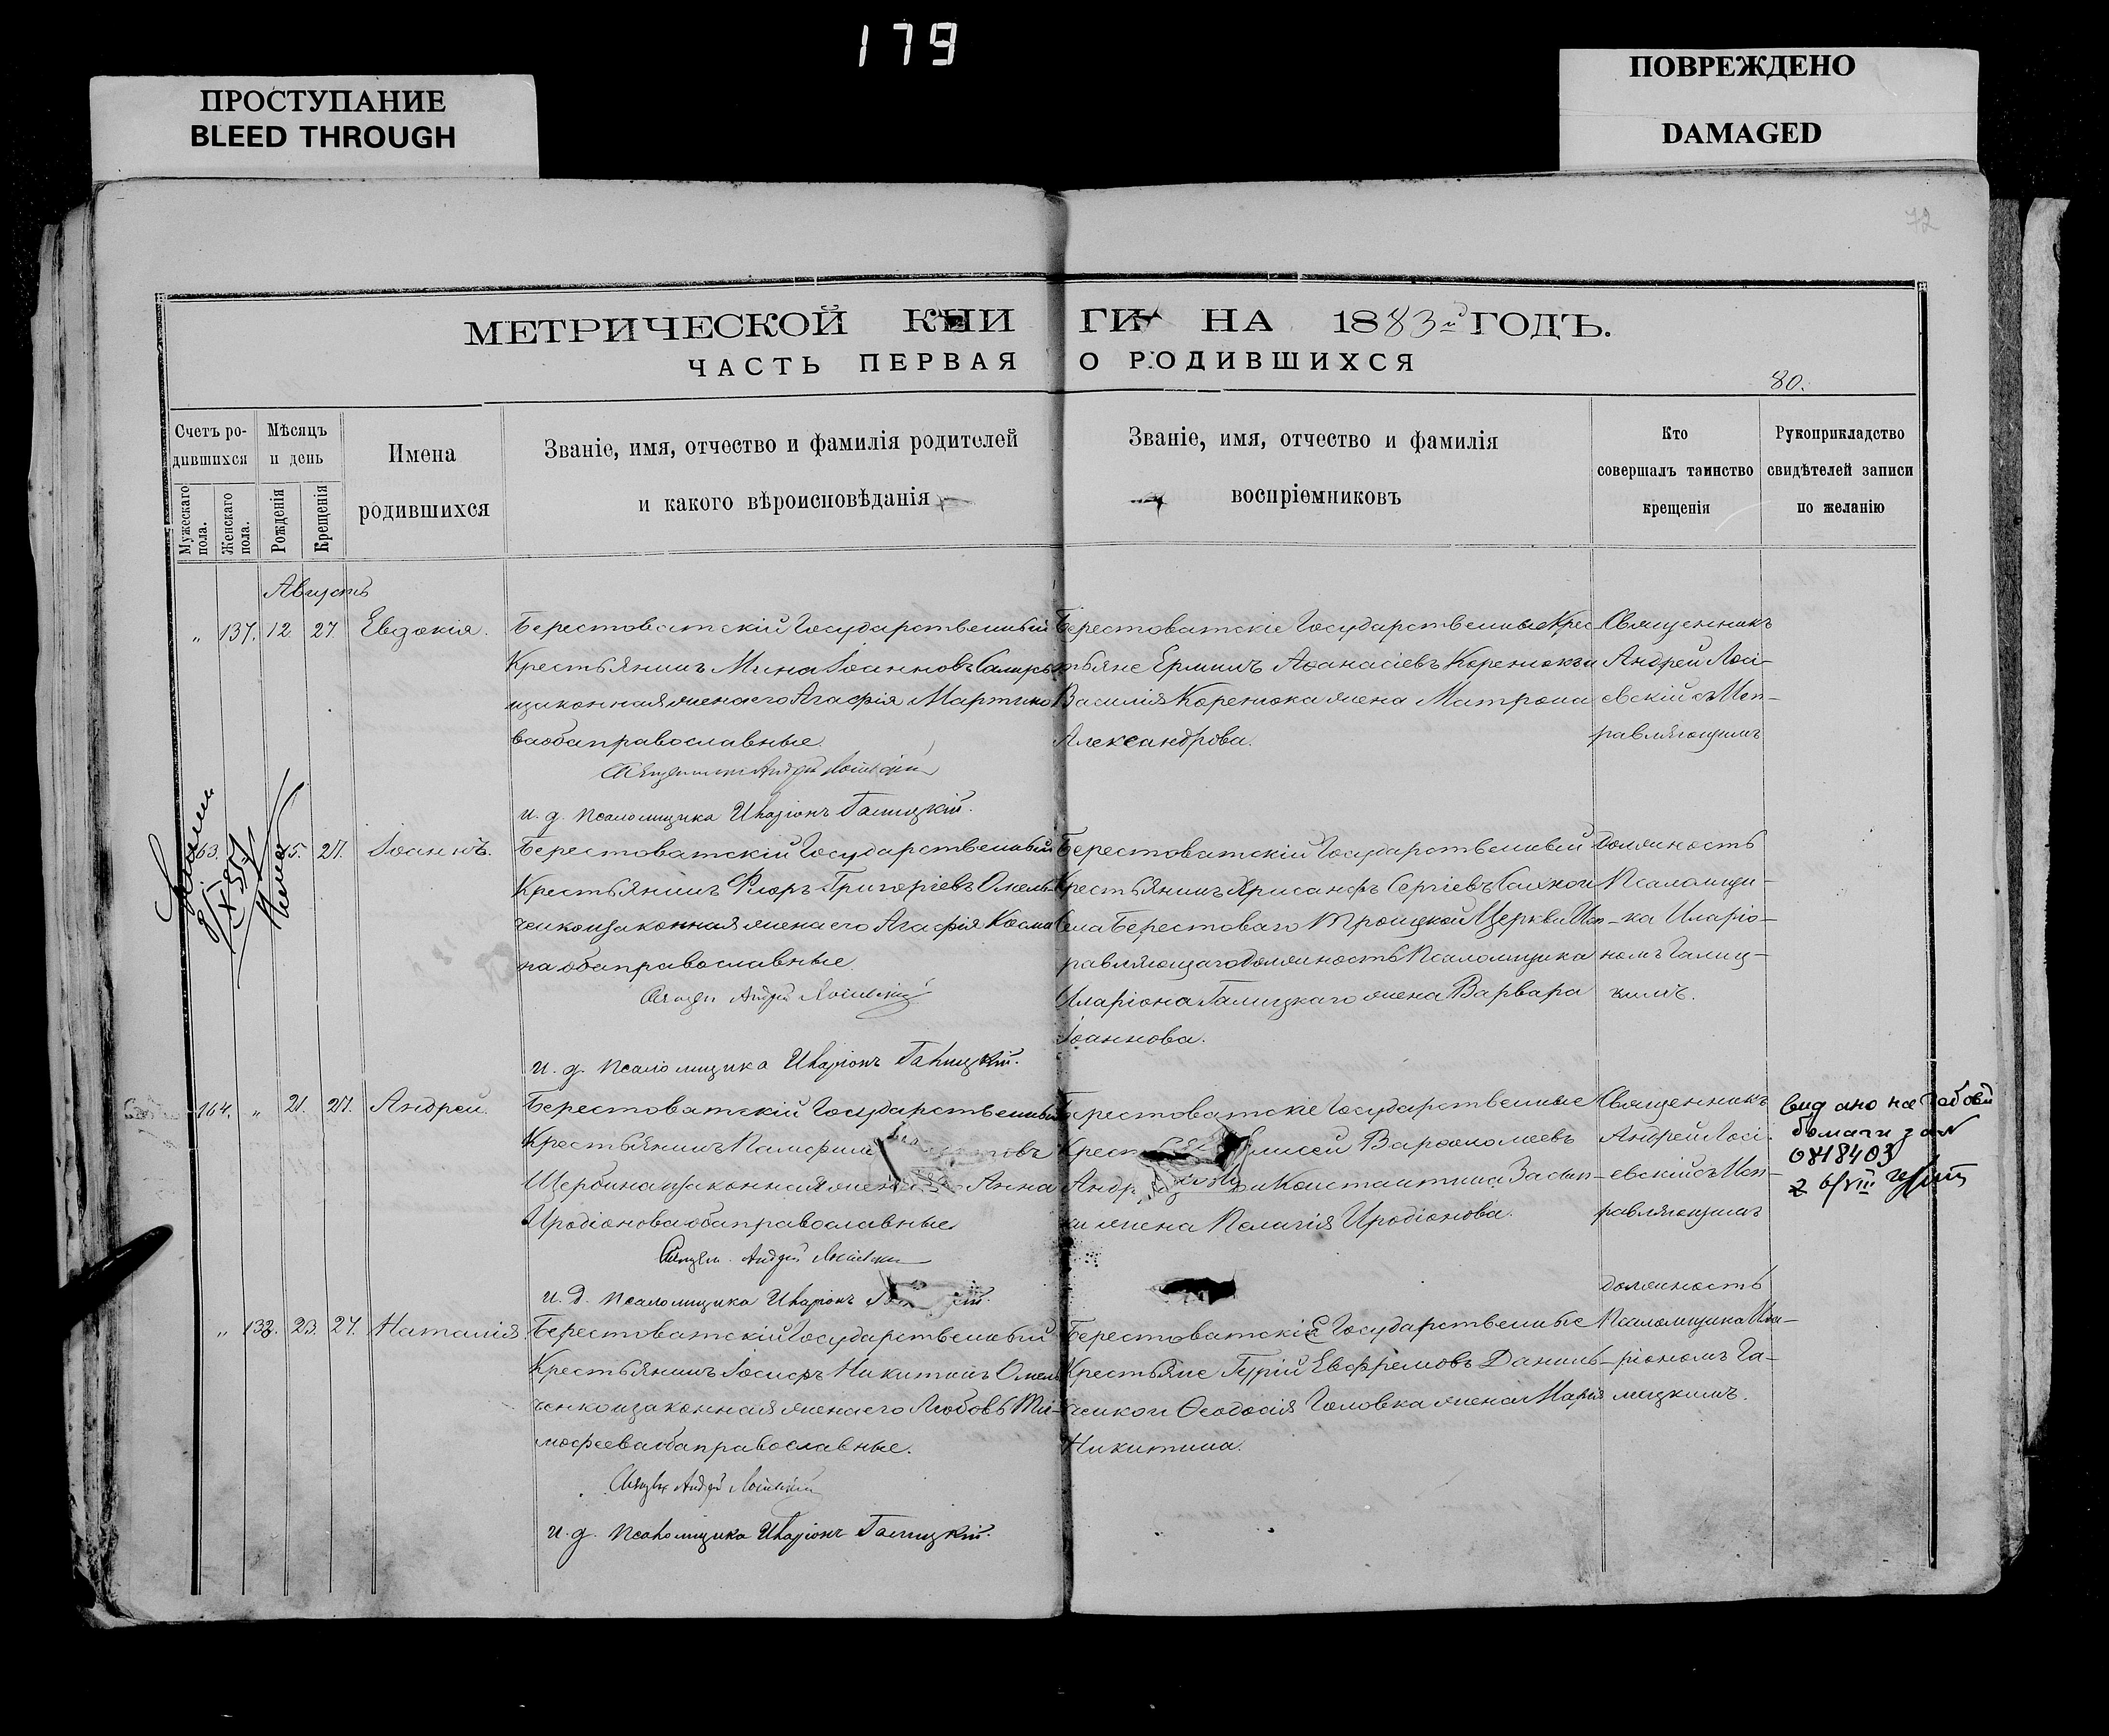 179
ПРОСТУПАНИЕ
BLEED THROUGH
ПОВРЕЖДЕНО
DAMAGED
72
МЕТРИЧЕСКОЙ КНИГИ НА 1883й ГОДЪ.
ЧАСТЬ ПЕРВАЯ О РОДИВШИХСЯ
80.
Счетъ родившихся
Мужескаго пола.
Женскаго пола.
Мѣсяцъ и день
Рожденія
Крещенія
Имена родившихся
Званіе, имя, отчество и фамилія родителей
и какого вѣроисповѣданія
Званіе, имя, отчество и фамилія
воспріемниковъ
Кто
совершалъ таинство
крещенія
Рукоприкладство
свидѣтелей записи
по желанію
Августъ
„ 137. 12. 27. Евдокія.
Берестоватскій Государственный
Крестьянинъ Мина Іоанновъ
и законная жена его Агафія Мартино
ва оба православные.
Священникъ Андрей
и. д. псаломщика Иларіонъ Галицкій.
Берестоватскіе Государственные Крес-
тьяне Ермилъ Аѳанасіевъ Коренюкъ и
Василія Коренюка жена Матрона
Александрова.
Священникъ
Андрей Лосі-
евскій съ Исп-
равляющимъ
163. 15. 27. Іоаннъ.
Берестоватскій Государственный
Крестьянинъ Флоръ Григоріевъ Омель-
ченко и законная жена его Агафія Косми
на оба православные.
Священ Андрей
и. д. псаломщика Иларіонъ Галицкій.
Берестоватскій Государственный
Крестьянинъ Хрисанфъ Сергіевъ и
Села Берестоваго Троицкой Церкви Исп-
равляющаго должность Псаломщика
Иларіона Галицкаго жена Варвара
Іоаннова.
должность
Псаломщи-
ка Иларіо-
номъ Галиц-
кимъ.
164. „ 21. 27. Андрей.
Берестоватскій Государственный
Крестьянинъ Памфилъ
Щербина и законная жена его Анна
Иродіонова оба православные
Священ. Андрей
и. д. псаломщика Иларіонъ
Берестоватскіе Государственные
Крест Варѳоломеевъ
Андр и Константина Засып-
ки жена Пелагія Иродіонова.
Священникъ
Андрей Лосі-
евскій съ Исп-
равляющимъ
должность
видано на
бомаги за №
0418403
„ 138. 23. 27. Наталія
Берестоватскій Государственный
Крестьянинъ Іосифъ Никитинъ Омель
ченко и законная жена его Любовь Ти-
моѳеева оба православные.
Священ Андрей
и. д. псаломщика Иларіонъ Галицкій.
Берестоватскіе Государственные
Крестьяне Гурій Евфремовъ Даниль-
ченко и Ѳеодосія Головка жена Марія
Никитина.
Псаломщика Ила-
ріономъ Га-
лицкимъ.